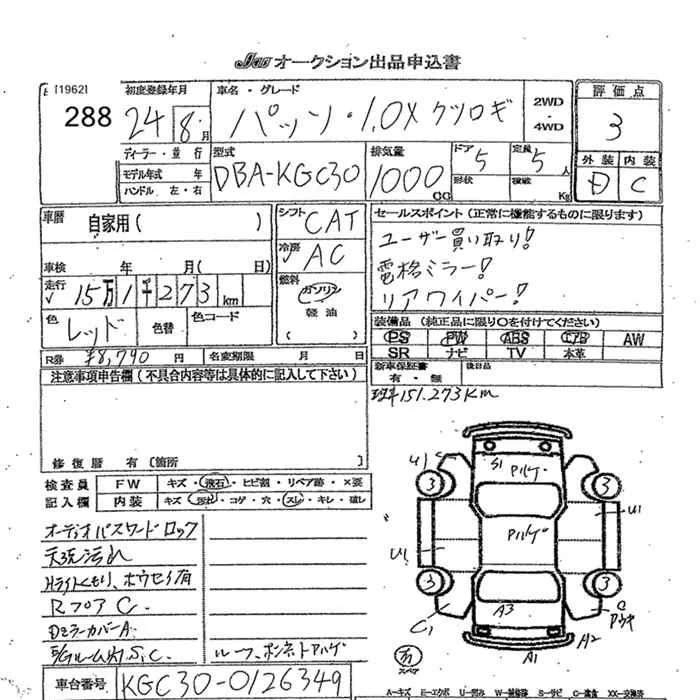 JAA オークション出品申込書
[1962]
288
初度登録年月
24 8月
車名・グレード
パッソ・1.0X クツロギ
2WD
・
4WD
評価点
3
外装 内装
D C
ディーラー・並行
モデル年式 年
ハンドル 左・右
型式
DBA-KGC30
排気量
1000 CC
ドア 5
形状
定員 5人
積載 Kg
車歴 自家用( )
車検 年 月( 日)
走行 √ 15万1千273 km
色 レッド
色替
色コード
R券 ¥8,790 円
名変期限 月 日
シフト CAT
冷房 AC
燃料 ガソリン
軽油
セールスポイント (正常に機能するものに限ります)
ユーザー買い取り!
電格ミラー!
リアワイパー!
装備品 (純正品に限り○を付けてください)
PS PW ABS エアB AW
SR ナビ TV 本革
新車保証書
有・無
後日品
151.273Km
注意事項申告欄(不具合内容等は具体的に記入して下さい)
修復歴 有 〔箇所 〕
検査員
記入欄
FW キズ・飛石・ヒビ割・リペア跡・×要
内装 キズ・汚れ・コゲ・穴・スレ・キレ・破レ
オーディオパスワードロック
天張汚れ
Hライトくもり、ホウセキ有
RフロアC.
DミラーカバーA
ルーフ、ボンネットアルゲ
車台番号 KGC30-0126349
U1
S1 アルゲ
3 3
アルゲ
U1
U1
3 3
A3
C1
C
A2
A1
スペア
A-キズ E-エクボ U-凹み W-補修跡 S-サビ C-腐食 XX-交換済